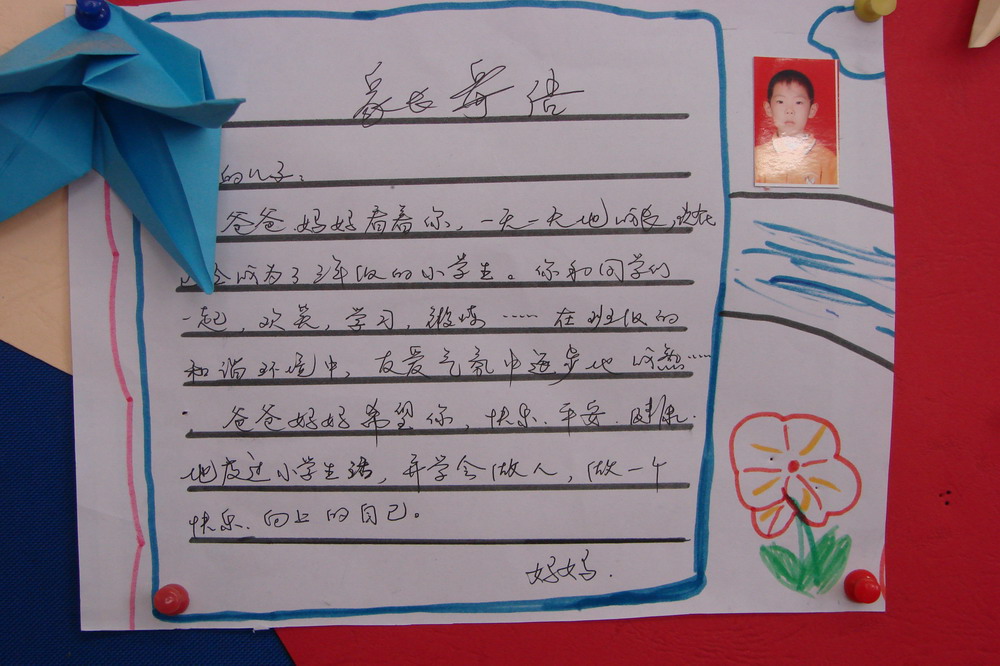 家长寄语
的儿子：
爸爸妈妈看着你，一天一天地成长，现在
已经成为了三年级的小学生。你和同学们
一起，欢笑，学习，锻炼……在班级的
和谐环境中，友爱气氛中逐步地成熟……
爸爸妈妈希望你，快乐、平安、健康
地度过小学生活，并学会做人，做一个
快乐、向上的自己。
妈妈.